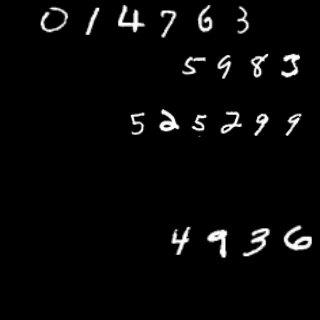 014763
5983
525299
4936